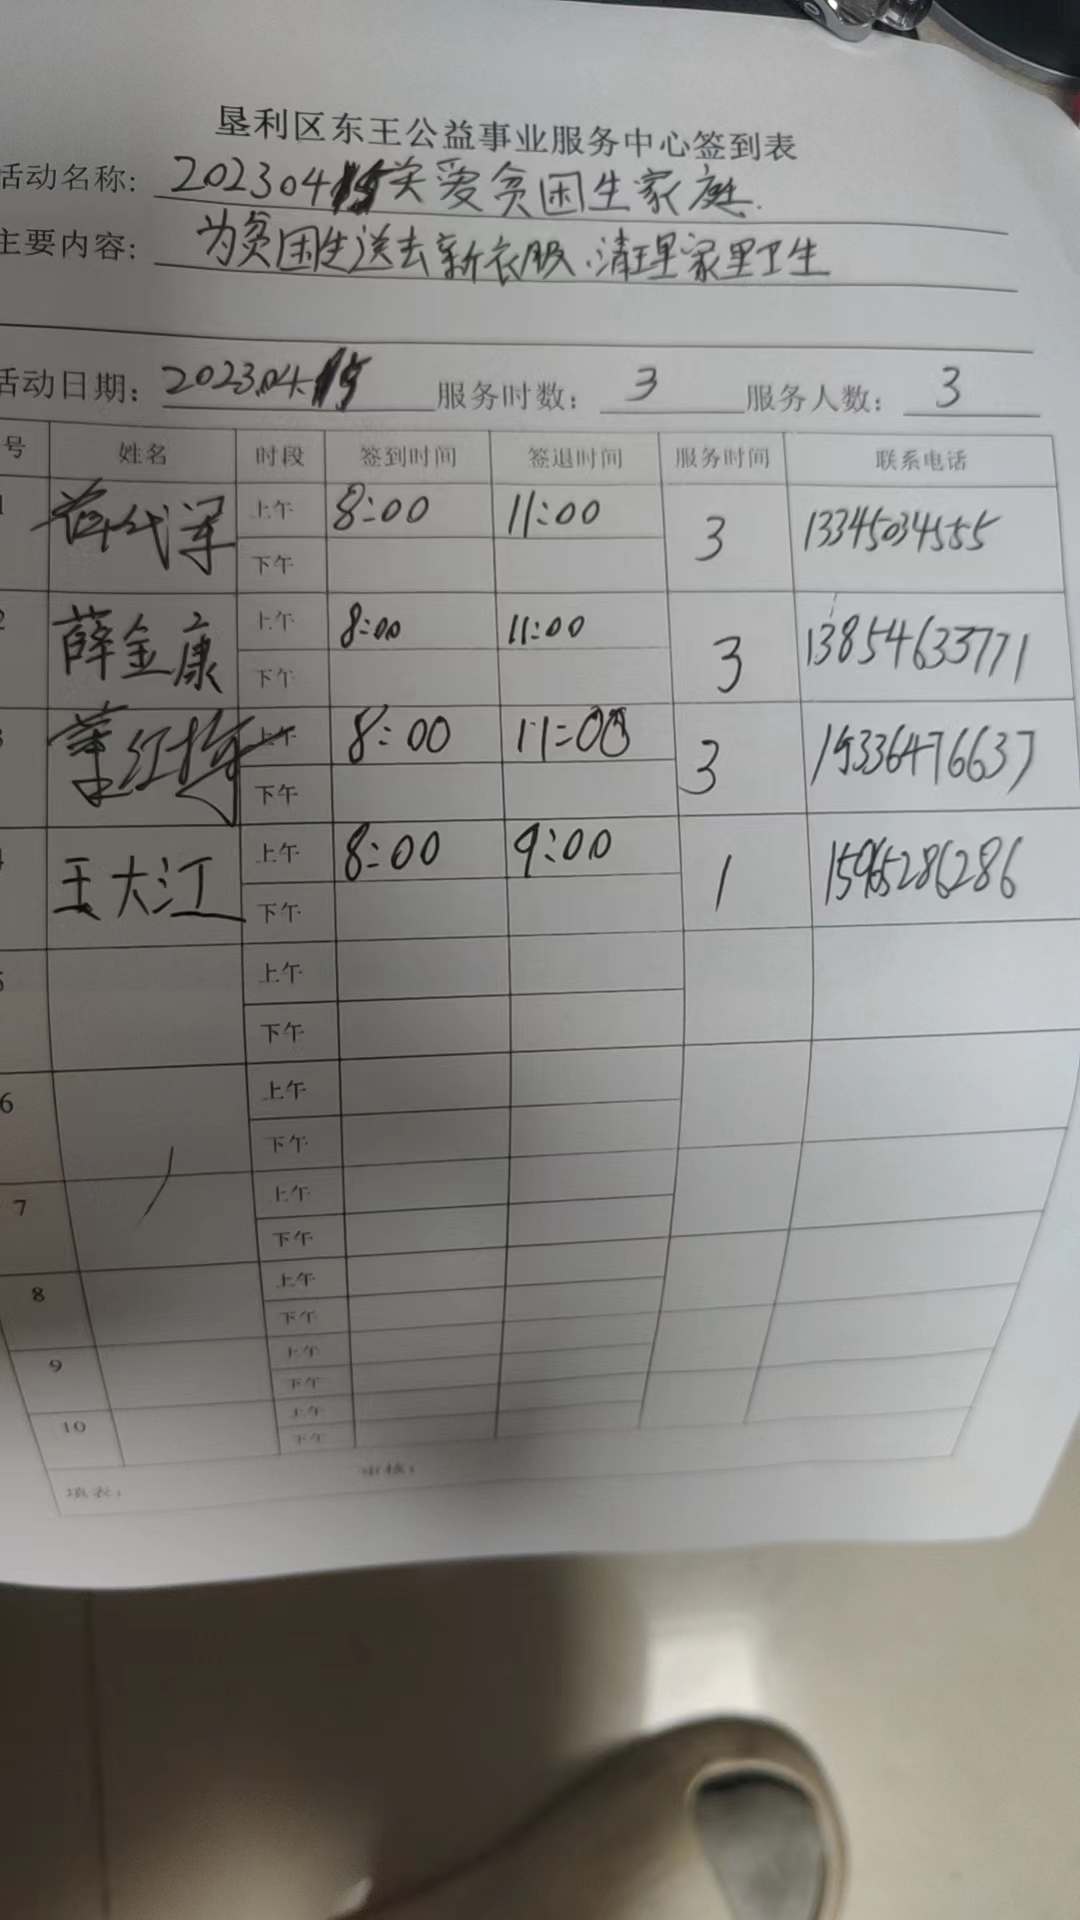 垦利区东王公益事业服务中心签到表
活动名称: 20230415关爱贫困生家庭.
主要内容: 为贫困生送去新衣服.清理家里卫生
活动日期: 2023.04.15 服务时数: 3 服务人数: 3
号 姓名 时段 签到时间 签退时间 服务时间 联系电话
1 上午 8:00 11:00 3 13345034555
下午
2 薛金康 上午 8:00 11:00 3 13854633771
下午
3 上午 8:00 11:00 3 15336476637
下午
4 王大江 上午 8:00 9:00 1 15965286286
下午
5 上午
下午
6 上午
下午
7 上午
下午
8 上午
下午
9 上午
下午
10 上午
下午
填表: 审核: